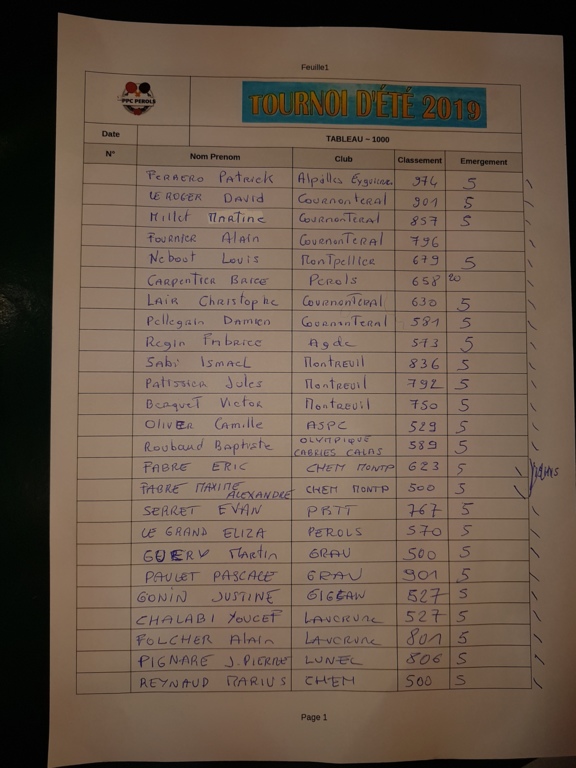 Feuille1
PPC PEROLS
TOURNOI D'ÉTÉ 2019
Date
TABLEAU – 1000
N° Nom Prenom Club Classement Emergement
PERAERO PATRICK Alpilles 974 5
LE ROGER DAVID COURNONTERAL 901 5
Millet Martine COURNONTERAL 857 5
FOURNIER Alain COURNONTERAL 796
Neboot Louis MONTPELLIER 679 5
CARPENTIER BRICE PEROLS 658 20
LAIR Christophe COURNONTERAL 630 5
Pellegrin Damien COURNONTERAL 581 5
Regin Fabrice Agde 573 5
SABI ISMAEL Montreuil 836 5
Patissier Jules Montreuil 792 5
Becquet Victor Montreuil 750 5
OLIVER Camille ASPC 529 5
Roubaud Baptiste OLYMPIQUE CABRIES CALAS 589 5
FABRE ERIC CHEM MONTP 623 5
FABRE MAXIME ALEXANDRE CHEM MONTP 500 5
SERRET EVAN PBTT 767 5
LE GRAND ELIZA PEROLS 570 5
Martin GRAU 500 5
PAULET PASCALE GRAU 901 5
GONIN JUSTINE GIGEAN 527 5
CHALABI YOUCEF LAVERUNE 527 5
FOLCHER Alain LAVERUNE 801 5
PIGNARE J.PIERRE LUNEL 806 5
REYNAUD MARIUS CHEM 500 5
Page 1